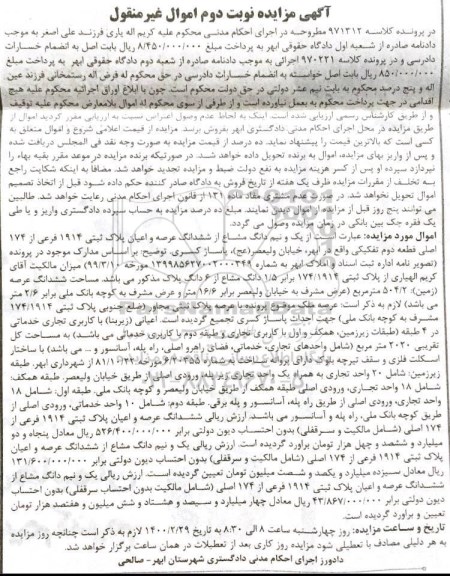 آگهی مزایده نوبت دوم اموال غیرمنقول
در پرونده کلاسه ۹۷۱۳۱۲ مطروحه در اجرای احکام مدنی محکوم علیه کریم اله یاری فرزند علی اصغر به موجب
دادنامه صادره از شعبه اول دادگاه حقوقی ابهر به پرداخت مبلغ ۸/۴۵۰/۰۰۰/۰۰۰ ریال بابت اصل به انضمام خسارات
دادرسی و در پرونده کلاسه ۹۷۰۲۲۱ اجرائی به موجب دادنامه صادره از شعبه دوم دادگاه حقوقی ابهر به پرداخت مبلغ
۸۵۰/۰۰۰/۰۰۰ ریال بابت اصل خواسته به انضمام خسارات دادرسی در حق محکوم له فرض اله رستمخانی فرزند عین
اله و پنج درصد محکوم به بابت نیم عشر دولتی در حق دولت محکوم است. چون با ابلاغ اوراق اجرائیه محکوم علیه هیچ
اقدامی در جهت پرداخت محکوم به بعمل نیاورده است و از طرفی از سوی محکوم له اموال بلامعارض محکوم علیه توقیف
و از طریق کارشناس رسمی ارزیابی شده است. اینک به لحاظ عدم وصول اعتراض نسبت به ارزیابی مقرر گردید اموال از
طریق مزایده در محل اجرای احکام مدنی دادگستری ابهر بفروش برسد. مزایده از قیمت اعلامی شروع و اموال متعلق به
کسی است که بالاترین قیمت را پیشنهاد نماید. ده درصد از قیمت مزایده به صورت وجه نقد فی المجلس دریافت شده
و پس از واریز بهای مزایده، اموال به برنده تحویل داده خواهد شد. در صورتیکه برنده مزایده در موعد مقرر بقیه بهاء را
نپردازد سپرده او پس از کسر هزینه مزایده به نفع دولت ضبط و مزایده تجدید خواهد شد. مضافا به اینکه شکایت راجع
به تخلف از مقررات مزایده ظرف یک هفته از تاریخ فروش به دادگاه صادر کننده حکم داده شود قبل از اتخاذ تصمیم
اموال تحویل نخواهد شد. در صورت عدم مشتری مفاد ماده ۱۳۱ از قانون اجرای احکام مدنی رعایت خواهد شد. طالبین
می توانند پنج روز قبل از مزایده از اموال بازدید نمایند. مبلغ ده درصد مزایده به حساب سپرده دادگستری واریز و یا طی
یک فقره چک بین بانکی در وجه برنده مزایده وصول می گردد.
اموال مورد مزایده: عبارت است از یک و نیم دانگ مشاع از ششدانگ عرصه و اعیان پلاک ثبتی ۱۹۱۴ فرعی از ۱۷۴
اصلی قطعه دوم تفکیکی واقع در ابهر، خیابان ولیعصر(عج)، پاساژ کسری. توضیح: براساس مدارک موجود در پرونده
(تصویر نامه اداره ثبت اسناد و املاک ابهر به شماره ۱۳۹۹۸۵۶۲۷۰۰۲۰۰۰۳۴۹ مورخه ۹۹/۳/۱۰) میزان مالکیت آقای
کریم الهیاری از پلاک ثبتی ۱۷۴/۱۹۱۴ برابر ۱/۵ دانگ مشاع از ۶ دانگ پلاک مذکور می باشد. مساحت ششدانگ عرصه
(زمین) ۵۰۴/۲ مترمربع (عرض مشرف به خیابان ولیعصر برابر ۱۶/۶ متر و عرض مشرف به کوچه بانک ملی برابر ۲/۶ متر
می باشد) لازم به ذکر است: عرصه ملک موصوف
مشرف به کوچه بانک ملی) جهت احداث پاساژ کسری تجمیع گردیده است. اعیانی (زیربنا) با کاربری تجاری خدماتی
در ۴ طبقه (طبقات زیرزمین، همکف و اول با کاربری تجاری و طبقه دوم با کاربری خدماتی می باشد) به مساحت کل
تقریبی ۲۰۲۰ متر مربع (شامل واحدهای تجاری، خدماتی، فضای راهرو اصلی، راه پله، آسانسور و ... می باشد) با ساختار
اسکلت فلزی و سقف تیرچه بلوک دارای پروانه ساخت به شماره
زیرزمین: شامل ۲۰ واحد تجاری به همراه یک واحد تجاری زیر پله، ورودی اصلی از طریق خیابان ولیعصر. طبقه همکف:
شامل ۱۸ واحد تجاری، ورودی اصلی طبقه همکف از طریق خیابان ولیعصر و کوچه بانک ملی. طبقه اول: شامل ۱۸
واحد تجاری، ورودی اصلی از طریق راه پله، آسانسور و پله برقی. طبقه دوم: شامل ۱۰ واحد خدماتی، ورودی اصلی از
طریق کوچه بانک ملی، راه پله و آسانسور می باشد. ارزش ریالی ششدانگ عرصه و اعیان پلاک ثبتی ۱۹۱۴ فرعی از
۱۷۴ اصلی (شامل مالکیت و سرقفلی) بدون احتساب دیون دولتی برابر ۵۲۶/۴۰۰/۰۰۰/۰۰۰ ریال معادل پنجاه و دو
میلیارد و ششصد و چهل هزار تومان برآورد گردیده است. ارزش ریالی یک و نیم دانگ مشاع از ششدانگ عرصه و اعیان
پلاک ثبتی ۱۹۱۴ فرعی از ۱۷۴ اصلی (شامل مالکیت و سرقفلی) بدون احتساب دیون دولتی برابر ۱۳۱/۶۰۰/۰۰۰/۰۰۰
ریال معادل سیزده میلیارد و یکصد و شصت میلیون تومان تعیین گردیده است. ارزش ریالی یک و نیم دانگ مشاع از
ششدانگ عرصه و اعیان پلاک ثبتی ۱۹۱۴ فرعی از ۱۷۴ اصلی (شامل مالکیت بدون احتساب سرقفلی) بدون احتساب
دیون دولتی برابر ۴۳/۸۶۷/۰۰۰/۰۰۰ ریال معادل چهار میلیارد و سیصد و هشتاد و شش میلیون و هفتصد هزار تومان
تعیین و برآورد گردیده است.
تاریخ و ساعت مزایده: روز چهارشنبه ساعت ۸ الی ۸:۳۰ به تاریخ ۱۴۰۰/۲/۲۹ لازم به ذکر است چنانچه روز مزایده
به هر دلیلی مصادف با تعطیلی شود مزایده روز کاری بعد از تعطیلات در همان ساعت برگزار خواهد شد.
دادورز اجرای احکام مدنی دادگستری شهرستان ابهر- صالحی